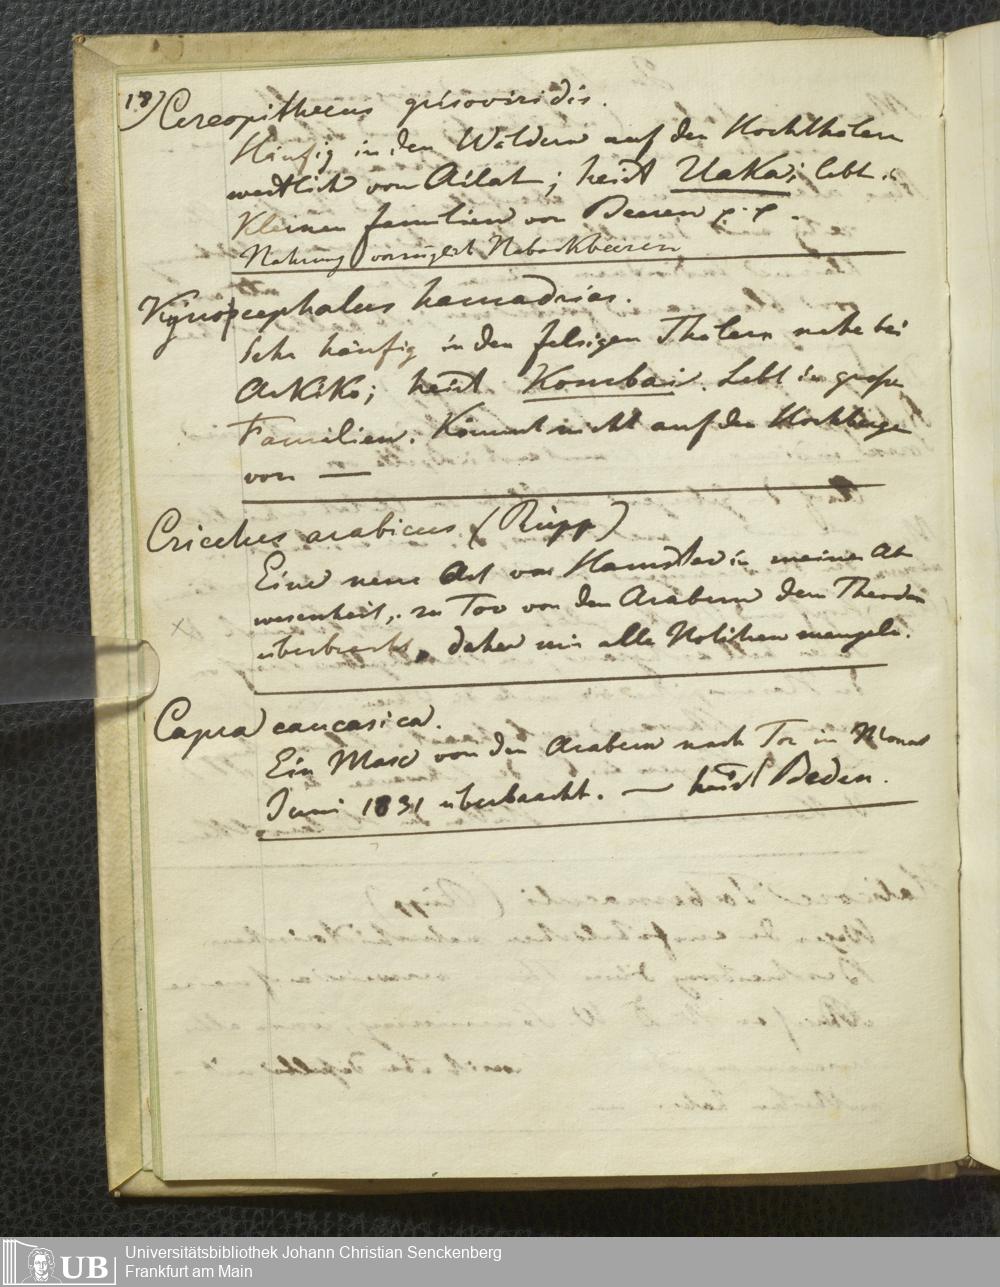 18)
Cercopithecus grisoviridis.
Häufig in den Wäldern auf den Hochthälern
westlich von Ailat; heist UaKa; lebt i
Kleinen familien von Beeren p. p.
Nahrung vorzüglich Nabackbeeren
Kynopcephalus hamadrias.
Sehr häufig in den felsigen Thälern nahe bei
ArKiKo; heist Kombai. Lebt in große
Familien. Kömmt nicht auf den Hochberge
vor —
Cricetus arabicus (Rüpp)
Eine neue Art von Hamster in meiner Ab
wesenheit, zu Tor von den Arabern dem Theodor
überbracht, daher mir alle Notitzen mangeln.
Capra caucasica.
Ein Masc von den Arabern nach Tor im Monat
Juni 1831 überbracht. — heist Beden.
Universitätsbibliothek Johann Christian Senckenberg
Frankfurt am Main
UB